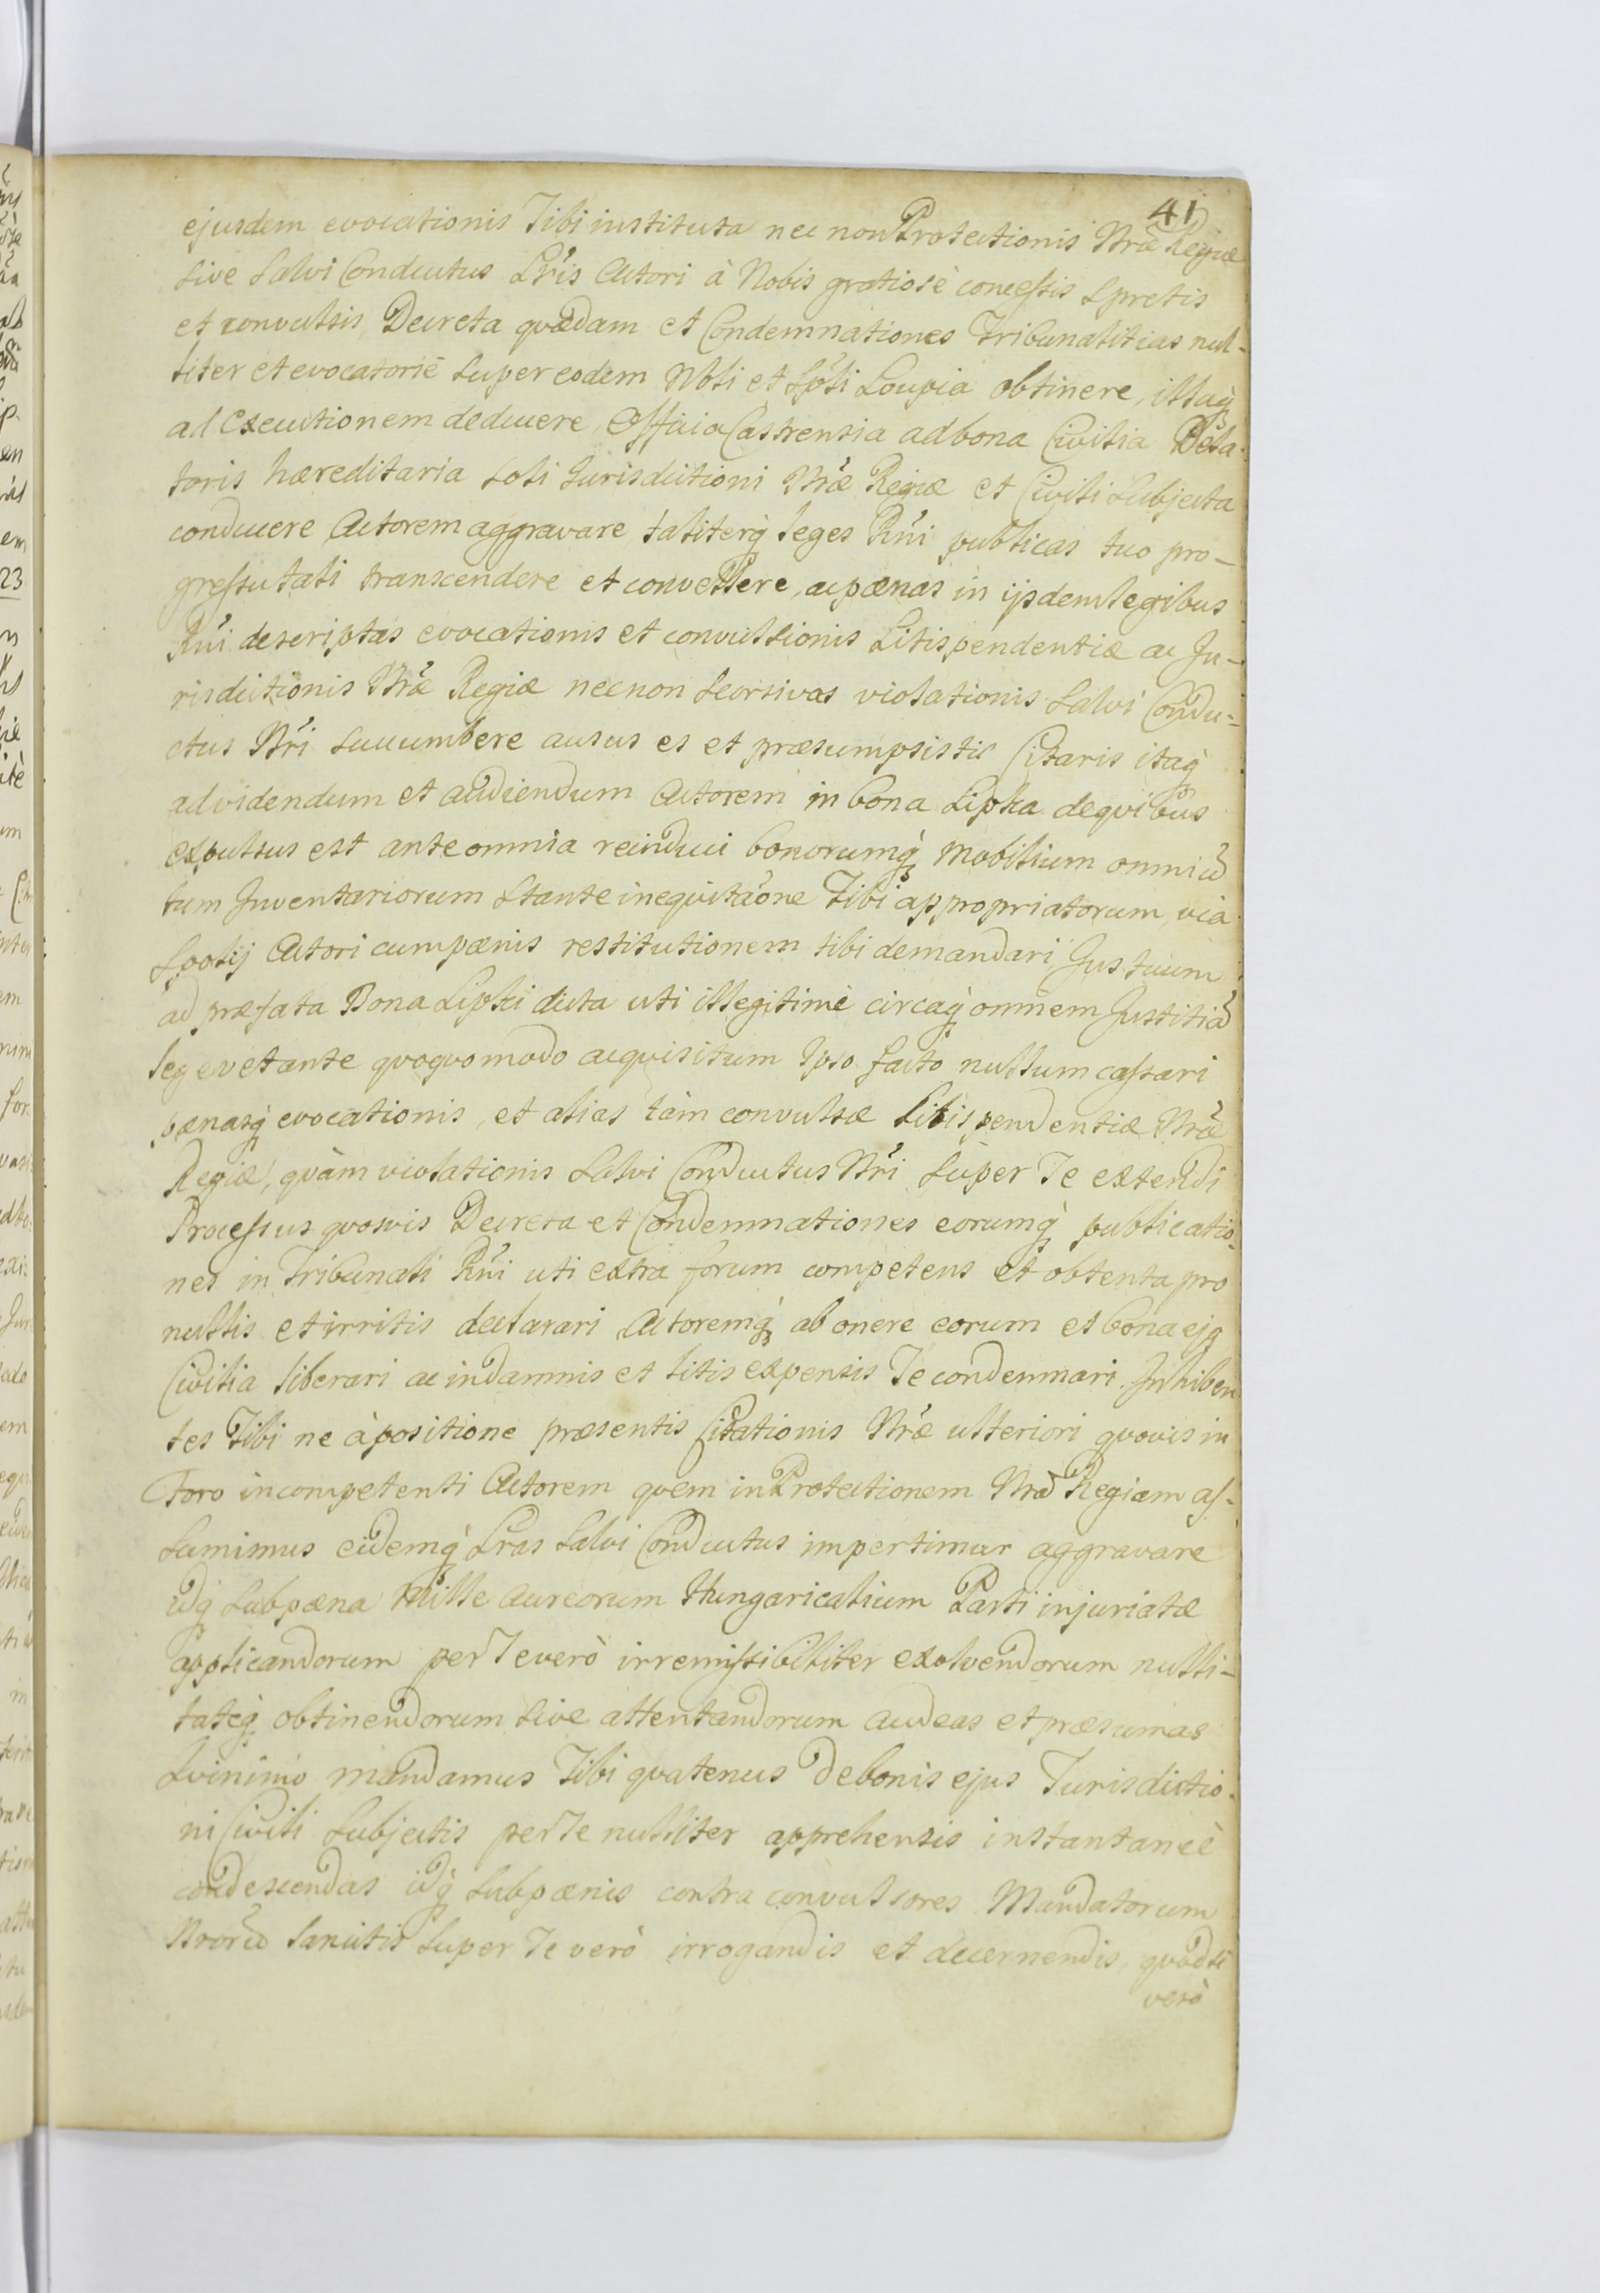 41
ejusdem evocationis Tibi instituta nec non Protectionis Nrae Regiae
sive Salvi Conductus Lris Actori à Nobis gratiosè concessis spretis
et convulsis, Decreta quaedam et Condemnationes Tribunalitias nul-
liter et evocatoriè super eodem Nbli et obtinere, illaq,
ad Executionem deducere, Officia Castrensia ad bona Civilia Dela-
toris haereditaria soli Jurisdictioni Nrae Regiae et Civili Subjecta
conducere Actorem aggravare taliterq, leges Rni publicas tuo pro-
gressu tali transcendere et convellere, ac paenas in ijsdem legibus
Rni descriptas evocationis et convulsionis Litispendentiae ac Ju-
risdictionis Nrae Regiae nec non seorsivas violationis Salvi Condu-
ctus Nri succumbere ausus es et praesumpsisti. Citaris itaq,
ad videndum et audiendum Actorem in bona Lipka de qvibus
expulsus est ante omnia reinduci bonorumq, Mobilium omniu
tum Inventariorum stante ineqvitaone Tibi appropriatorum, via
Spolij Actori cum paenis restitutionem tibi demandari Jus tuum
ad praefata Bona Lipki dicta uti illegitimè circaq, omnem Justitia
lege vetante qvoqvomodo acqvisitum Ipso facto nullum cassari
paenasq, evocationis, et alias tàm convulsae litispendentiae Nrae
Regiae, qvàm violationis Salvi Conductus Nri super Te extendi
Processus qvosvis Decreta et Condemnationes eorumq, publicatio-
nes in Tribunali Rni uti extra forum competens et obtenta pro
nullis et irritis declarari Actoremq, ab onere eorum et bona ejq
Civilia liberari ac in damnis et litis expensis Te condemnari. Inhiben
tes Tibi ne à positione praesentis Citationis Nrae ulteriori qvovis in
Foro incompetenti Actorem qvem in Protectionem Nra Regiam as-
sumimus eidemq, Lras Salvi Conductus impertimur aggravare
idq, sub paena Mille Aureorum Hungaricalium Parti injuriatae
applicandorum per Te verò irremissibiliter exolvendorum nulli-
tateq, obtinendorum sive attentandorum audeas et praesumas
Qvinimo mandamus Tibi qvatenus De bonis ejus Jurisdictio-
ni Civili Subjectis per Te nulliter apprehensis instantaneè
condescendas idq, sub paenis contra convulsores Mandatorum
Nroru sancitis super Te verò irrogandis et decernendis, qvodsi
verò